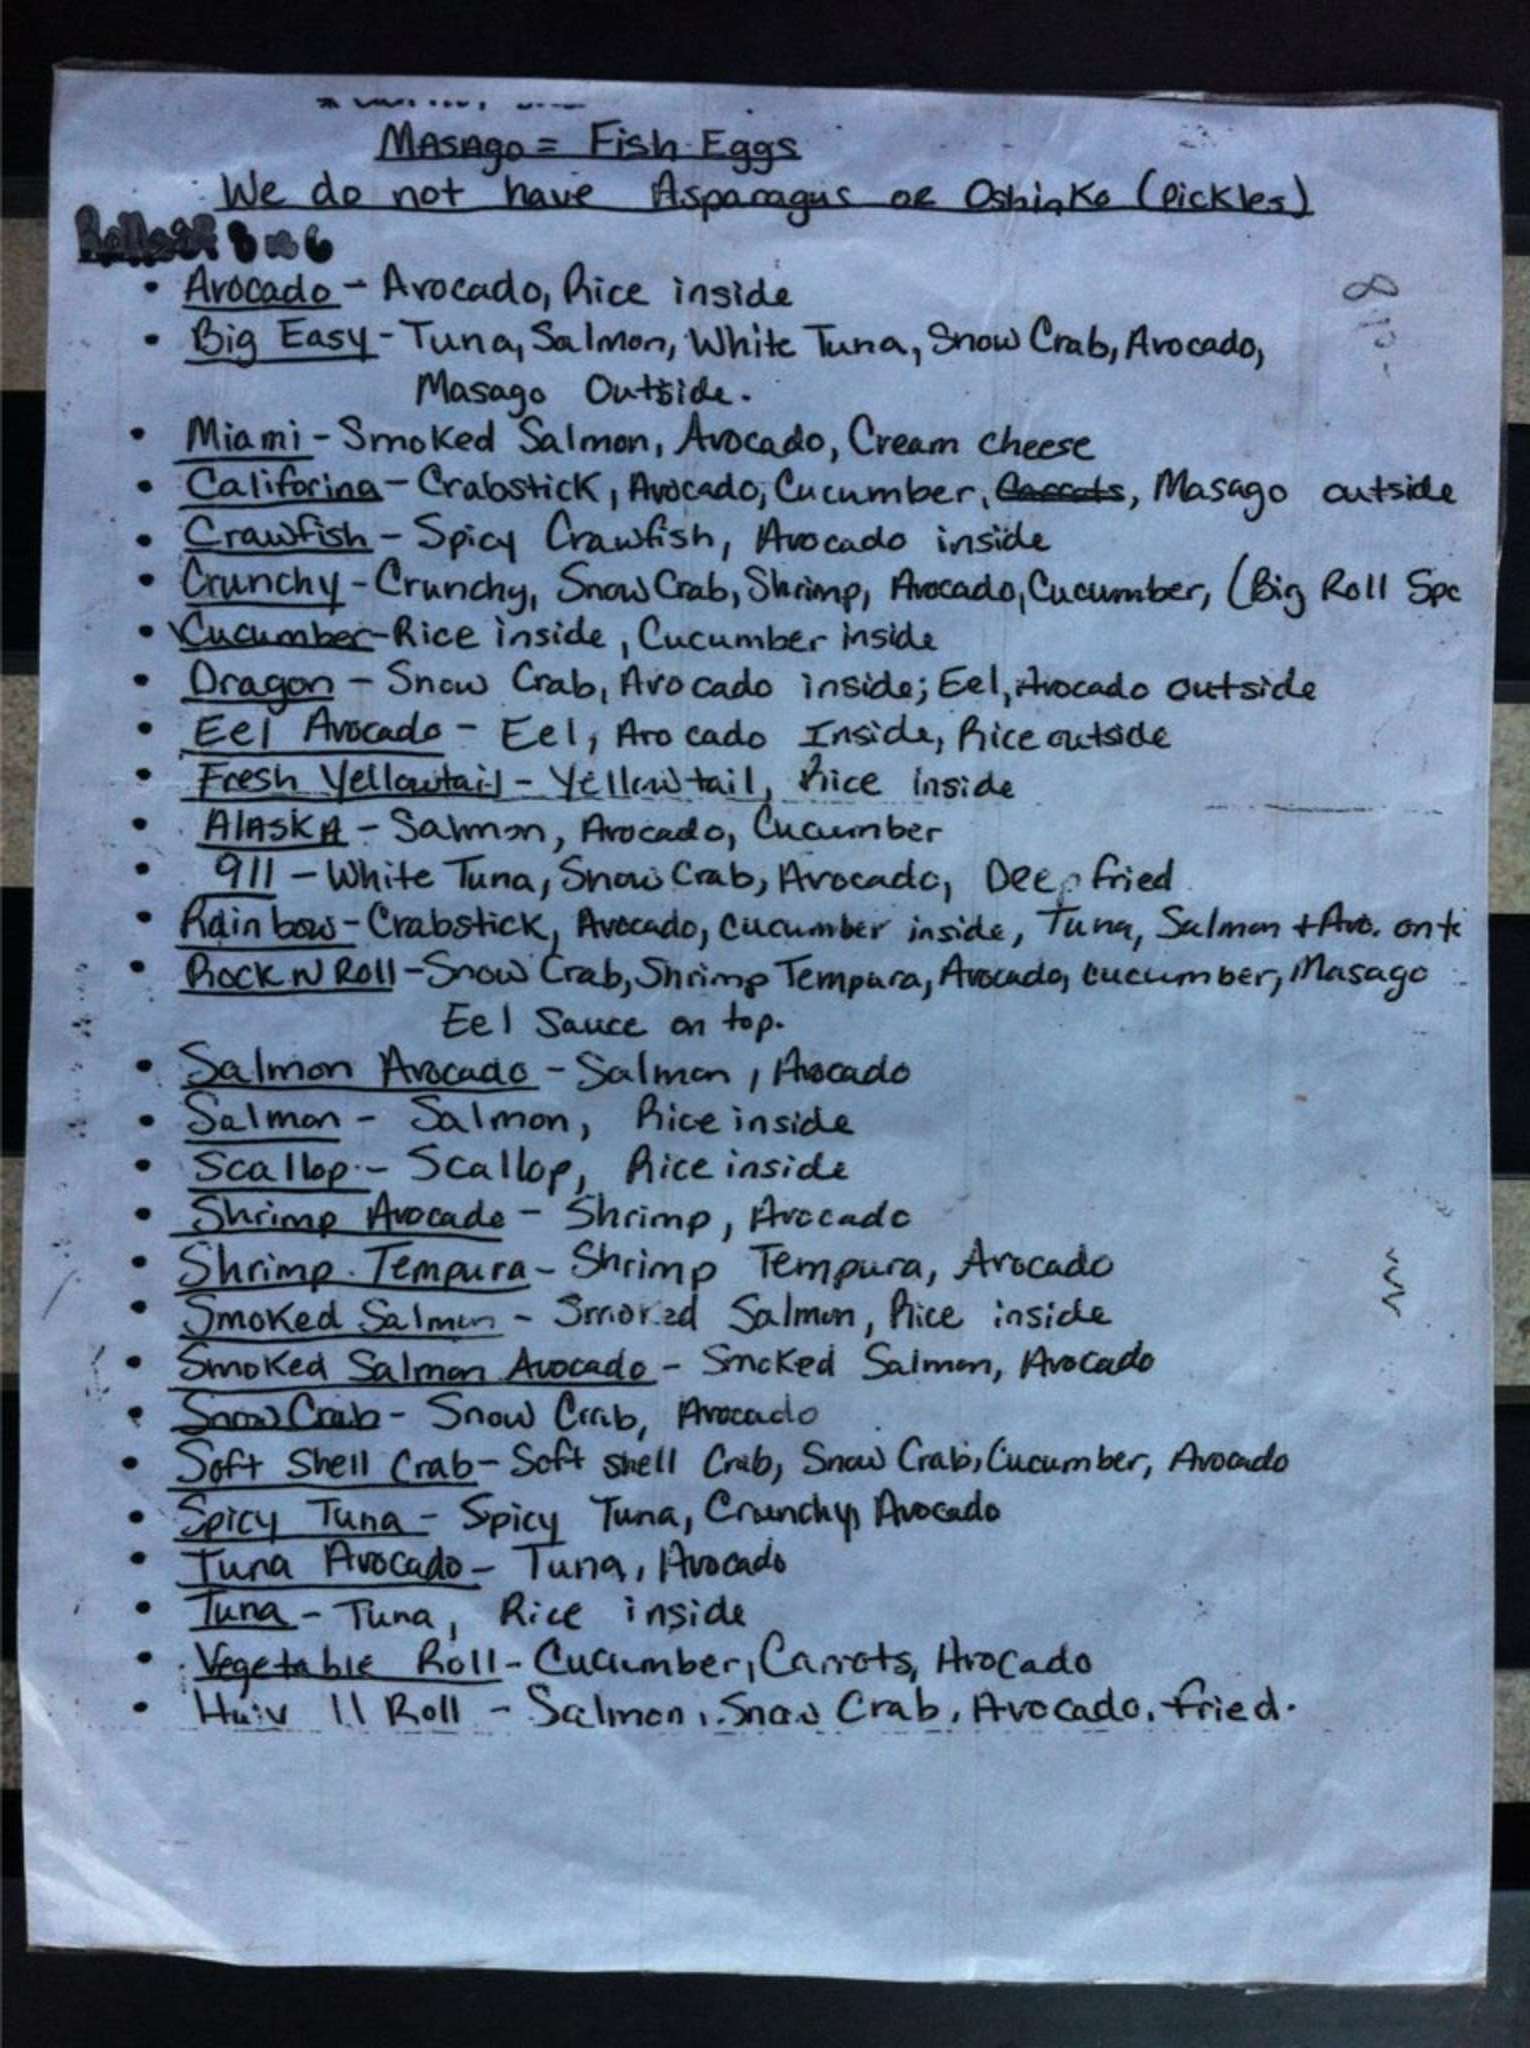 Masago = Fish Eggs
We do not have Asparagus or Oshinko (Pickles)
8 6
• Avocado - Avocado, Rice inside
• Big Easy - Tuna, Salmon, White Tuna, Snow Crab, Avocado,
Masago Outside.
• Miami - Smoked Salmon, Avocado, Cream cheese
• Califorina - Crabstick, Avocado, Cucumber, Carrots, Masago outside
• Crawfish - Spicy Crawfish, Avocado inside
• Crunchy - Crunchy, Snow Crab, Shrimp, Avocado, Cucumber, (Big Roll Spc
• Cucumber - Rice inside, Cucumber inside
• Dragon - Snow Crab, Avocado inside; Eel, Avocado outside
• Eel Avocado - Eel, Avocado Inside, Rice outside
• Fresh Yellowtail - Yellowtail, Rice inside
• Alaska - Salmon, Avocado, Cucumber
• 911 - White Tuna, Snow Crab, Avocado, Deep fried
• Rainbow - Crabstick, Avocado, cucumber inside, Tuna, Salmon + Avo. on t
• Rock N Roll - Snow Crab, Shrimp Tempura, Avocado, cucumber, Masago
Eel Sauce on top.
• Salmon Avocado - Salmon, Avocado
• Salmon - Salmon, Rice inside
• Scallop - Scallop, Rice inside
• Shrimp Avocado - Shrimp, Avocado
• Shrimp Tempura - Shrimp Tempura, Avocado
• Smoked Salmon - Smoked Salmon, Rice inside
• Smoked Salmon Avocado - Smoked Salmon, Avocado
• Snow Crab - Snow Crab, Avocado
• Soft Shell Crab - Soft shell Crab, Snow Crab, Cucumber, Avocado
• Spicy Tuna - Spicy Tuna, Crunchy, Avocado
• Tuna Avocado - Tuna, Avocado
• Tuna - Tuna, Rice inside
• Vegetable Roll - Cucumber, Carrots, Avocado
• 11 Roll - Salmon, Snow Crab, Avocado, fried.